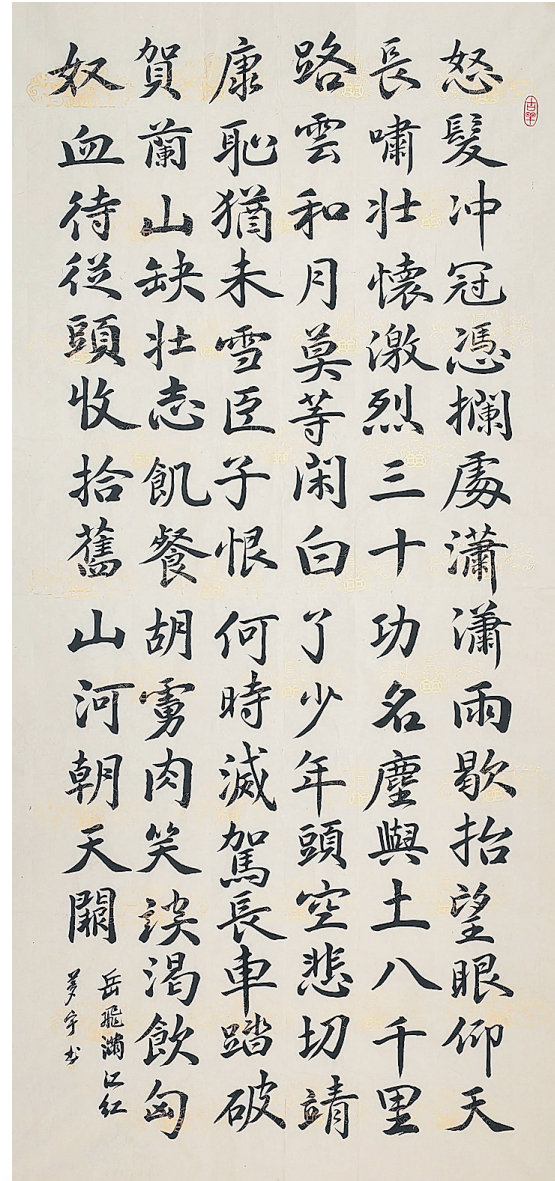 怒髮冲冠憑攔處瀟瀟雨歇抬望眼仰天
長嘯壯懷激烈三十功名塵與土八千里
路雲和月莫等閑白了少年頭空悲切靖
康恥猶未雪臣子恨何時滅駕長車踏破
賀蘭山缺壯志飢餐胡虜肉笑談渴飲匈
奴血待從頭收拾舊山河朝天闕
岳飛滿江紅
夢宇书